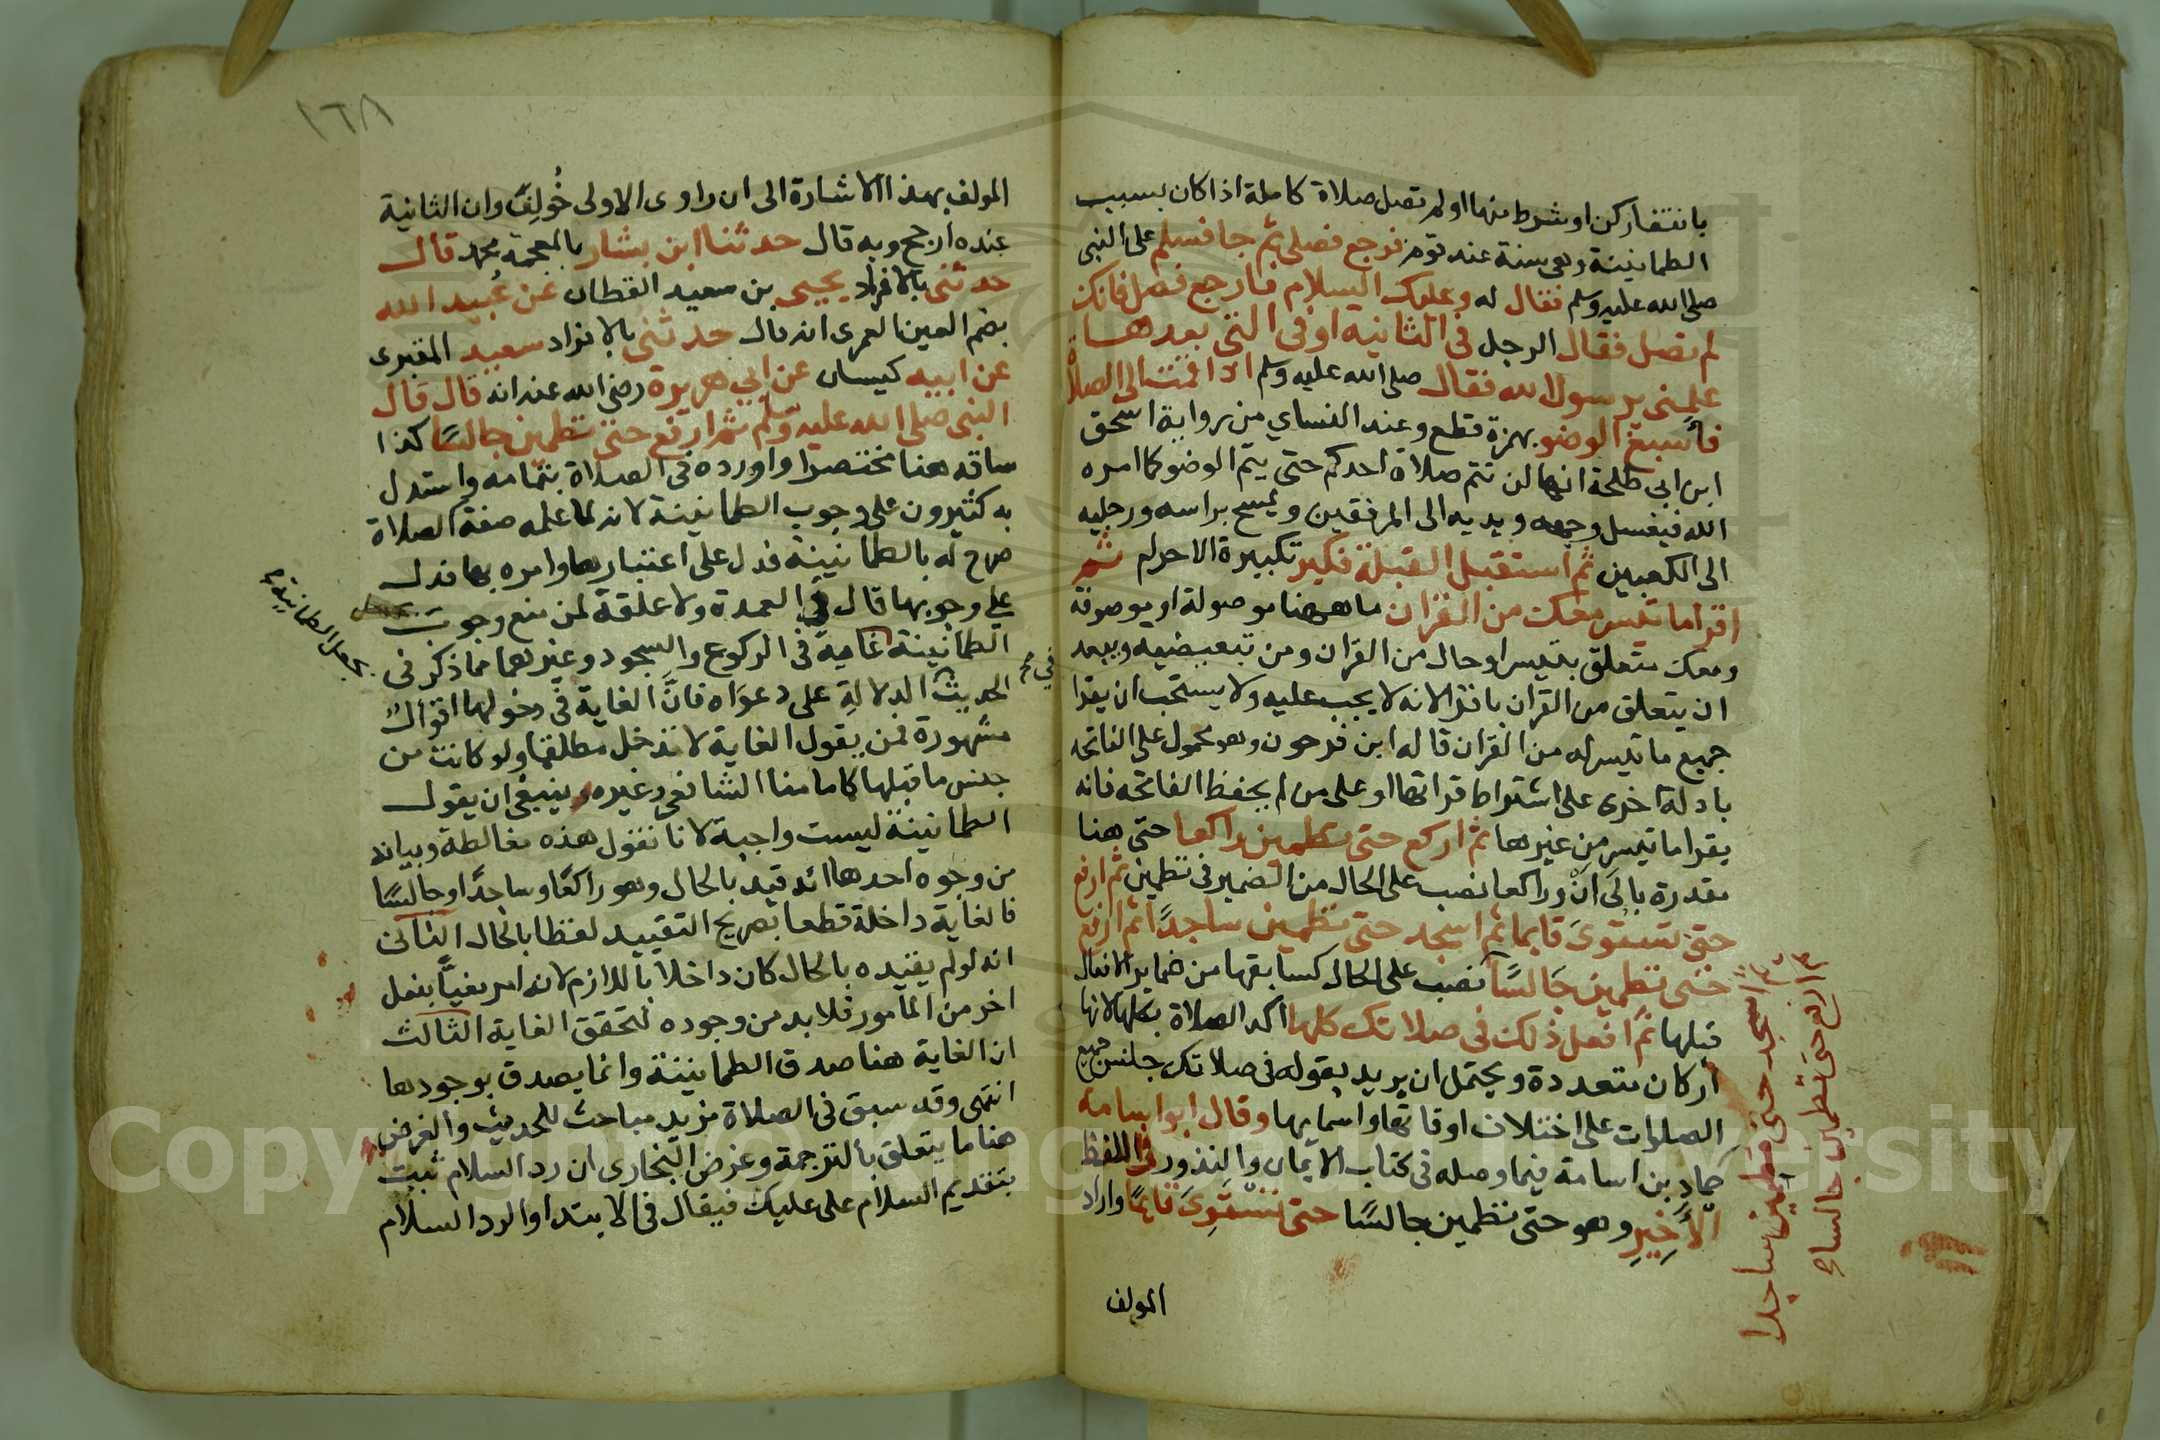 بانتفا ركن او شرط منها او لم تصل صلاة كاملة اذا كان بسبب
الطمانينة وهي سنة عند قوم فرجع فصلى ثم جا فسلم على النبي
صلى الله عليه وسلم فقال له وعليك السلام فارجع فصل فانك
لم تصل فقال الرجل في الثانية او في التي بعدها
علمني يرسول الله فقال صلى الله عليه وسلم اذا قمت الى الصلاة
فأسبغ الوضو بهمزة قطع وعند النساي من رواية اسحق
ابن ابي طلحة انها لن تتم صلاة احدكم حتى يتم الوضو كما امره
الله فيغسل وجهه ويديه الى المرفقين ويمسح براسه ورجليه
الى الكعبين ثم استقبل القبلة فكبر تكبيرة الاحرام ثم
اقرا ما تيسر معك من القران ما ههنا موصولة او موصوفة
ومعك متعلق بتيسر او حال من القران ومن تبعيضيه ويبعد
ان يتعلق من القران باقرا لانه لا يجب عليه ولا يستحب ان يقرا
جميع ما تيسر له من القران قاله ابن فرحون وهو محمول على الفاتحه
بادلة اخرى على اشتراط قراتها او على من لم يحفظ الفاتحه فانه
يقرا ما تيسر من غيرها ثم اركع حتى تطمين راكعا حتى هنا
مقدرة بالى انْ وراكعا نصب على الحال من الضمير في تطمين ثم ارفع
حتى تستوىَ قايما ثم اسجد حتى تطمين ساجدًا ثم ارفع
حتى تطمين جَالسًا نصب على الحال كسابقها من ضماير الافعال
قبلها ثم افعل ذلك في صلاتك كلها اكد الصلاة بكلها لانها
أركان متعددة ويحتمل ان يريد بقوله في صلاتك جنس جميع
الصلوات على اختلاف اوقاتها واسمايها وقال ابو اسامة
حماد بن اسامة فيما وصله في كتاب الايمان والنذور في اللفظ
الأَخِيرِ وهو حتى تطمين جالسًا حتى تَسْتَوِىَ قايمًا واراد
المولف
ثم اسجد حتى تطمين ساجدا
ثم ارفع حتى تطمين جالسا
١٦٨
المولف بهذا الاشارة الى ان راوى الاولى خُولِفَ وان الثانية
عنده ارجح وبه قال حدثنا ابن بشار بالمعجمة محمد قال
حدثني بالافراد يحيى بن سعيد القطان عن عُبيد الله
بضم العين العمرى انه قال حدثني بالافراد سعيد المقبرى
عن ابيه كيسان عن ابي هريرة رضي الله عنه انه قال قال
النبي صلى الله عليه وسلم ثم ارفع حتى تطمين جالسًا كذا
ساقه هنا مختصرا واورده في الصلاة بتمامه واستدل
به كثيرون على وجوب الطمانينة لانه لما علمه صفة الصلاة
صرح له بالطمانينة فدل على اعتبارها وامره بها فدل
على وجوبها قال في العمدة ولا علقة لمن منع وجوب
الطمانينة غاية في الركوع والسجود وغيرهما مما ذكر في
الحديث الدلالةِ على دعوَاه فانَّ الغاية في دخولها اقوالٌ
مشهورة فمن يقول الغاية لا تدخل مطلقا ولو كانت من
جنس ما قبلها كامامنا الشافعي وغيره ينبغي ان يقول
الطمانينة ليست واجبة لانا نقول هذه مغالطة وبيانه
من وجوه احدها انه قيد بالحال وهو راكعًا وساجدًا وجالسًا
فالغاية داخلة قطعا بصريح التقييد لفظا بالحال الثانى
انه لو لم يقيده بالحال كان داخلا باللازم لانه امر مغيَّا بفعل
اخر من المامور فلا بد من وجوده لتحقق الغاية الثالث
ان الغاية هنا صدق الطمانينة وانما يصدق بوجودها
انتهى وقد سبق في الصلاة مزيد مباحث للحديث والغرض
هنا ما يتعلق بالترجمة وغرض البخارى ان رد السلام ثبت
بتقديم السلام على عليك فيقال في الابتدا والرد السلام
بجعل الطمانينة